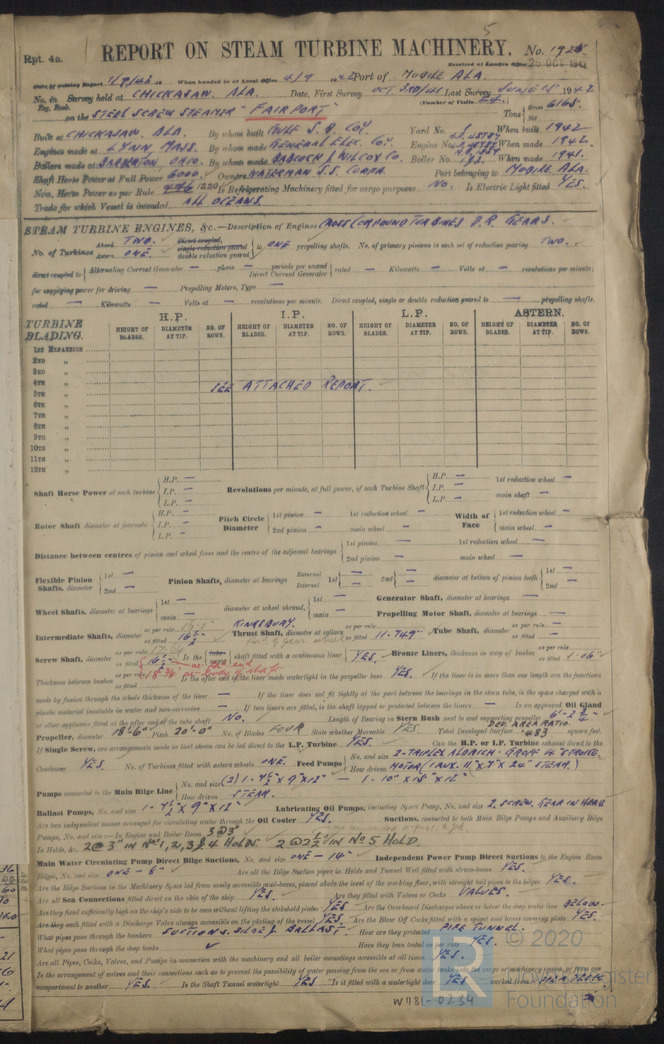 5
Rpt. 4a.
REPORT ON STEAM TURBINE MACHINERY. No. 1925
Received at London Office 28 OCT 1942
Date of writing Report 1/9/42 19 When handed in at Local Office 4/9 1942 Port of MOBILE ALA.
No. in Reg. Book. Survey held at CHICKASAW, ALA. Date, First Survey OCT 23RD/41 Last Survey JUNE 15 1942
(Number of Visits 24)
on the STEEL SCREW STEAMER "FAIRPORT" Tons Gross 6165 Net
Built at CHICKASAW, ALA. By whom built GULF S.B. COY. Yard No. 5 When built 1942
Engines made at LYNN MASS. By whom made GENERAL ELEC. COY. Engine No. When made 1942.
Boilers made at BARBERTON OHIO. By whom made BABCOCK & WILCOX CO. Boiler No. When made 1941.
Shaft Horse Power at Full Power 6000. Owners WATERMAN S.S. COMPA. Port belonging to MOBILE ALA.
Nom. Horse Power as per Rule 1220 Is Refrigerating Machinery fitted for cargo purposes NO. Is Electric Light fitted YES.
Trade for which Vessel is intended ALL OCEANS.
STEAM TURBINE ENGINES, &c.—Description of Engines CROSS COMPOUND TURBINES D.R. GEARS.
No. of Turbines Ahead TWO. Astern ONE. Direct coupled, single reduction geared double reduction geared to ONE propelling shafts. No. of primary pinions to each set of reduction gearing TWO.
direct coupled to Alternating Current Generator — phase — periods per second Direct Current Generator rated — Kilowatts — Volts at — revolutions per minute;
for supplying power for driving — Propelling Motors, Type —
rated — Kilowatts — Volts at — revolutions per minute. Direct coupled, single or double reduction geared to — propelling shafts.
TURBINE BLADING. H.P. I.P. L.P. ASTERN.
HEIGHT OF BLADES. DIAMETER AT TIP. NO. OF ROWS. HEIGHT OF BLADES. DIAMETER AT TIP. NO. OF ROWS. HEIGHT OF BLADES. DIAMETER AT TIP. NO. OF ROWS. HEIGHT OF BLADES. DIAMETER AT TIP. NO. OF ROWS.
1ST EXPANSION
2ND "
3RD "
4TH " SEE ATTACHED REPORT.
5TH "
6TH "
7TH "
8TH "
9TH "
10TH "
11TH "
12TH "
Shaft Horse Power at each turbine H.P. — I.P. — L.P. — Revolutions per minute, at full power, of each Turbine Shaft H.P. — I.P. — L.P. — 1st reduction wheel — main shaft —
Rotor Shaft diameter at journals H.P. — I.P. — L.P. — Pitch Circle Diameter 1st pinion — 2nd pinion — 1st reduction wheel — main wheel — Width of Face 1st reduction wheel — main wheel —
Distance between centres of pinion and wheel faces and the centre of the adjacent bearings 1st pinion — 2nd pinion — 1st reduction wheel — main wheel —
Flexible Pinion Shafts, diameter 1st — 2nd — Pinion Shafts, diameter at bearings External — Internal — 1st — 2nd — diameter at bottom of pinion teeth 1st — 2nd —
Wheel Shafts, diameter at bearings 1st — main — diameter at wheel shroud, 1st — main — Generator Shaft, diameter at bearings —
Propelling Motor Shaft, diameter at bearings —
Intermediate Shafts, diameter as per rule as fitted 16½" Thrust Shaft, diameter at collars KINGSBURY. as per rule as fitted 11.749" Tube Shaft, diameter as per rule as fitted
Screw Shaft, diameter as per rule as fitted Is the tube screw shaft fitted with a continuous liner YES. Bronze Liners, thickness in way of bushes as per rule as fitted 1.06"
Thickness between bushes as per rule as fitted Is the after end of the liner made watertight in the propeller boss YES. If the liner is in more than one length are the junctions
made by fusion through the whole thickness of the liner — If the liner does not fit tightly at the part between the bearings in the stern tube, is the space charged with a
plastic material insoluble in water and non-corrosive — If two liners are fitted, is the shaft lapped or protected between the liners — Is an approved Oil Gland
or other appliance fitted at the after end of the tube shaft NO. Length of Bearing in Stern Bush next to and supporting propeller
Propeller, diameter 18'-6" Pitch 20'-0" No. of Blades FOUR State whether Moveable YES. Total Developed Surface DEV. AREA RATIO .483 square feet.
If Single Screw, are arrangements made so that steam can be led direct to the L.P. Turbine YES. Can the H.P. or I.P. Turbine exhaust direct to the
Condenser YES. No. of Turbines fitted with astern wheels ONE. Feed Pumps No. and size 2-TRIPLEX ALDRICH-GROFF 4" STROKE How driven MOTOR (1 AUX. 11" x 7" x 24" STEAM.)
Pumps connected to the Main Bilge Line No. and size (2) 1-7½" x 9" x 12" — 1-10" x 18" x 12" How driven STEAM.
Ballast Pumps, No. and size 1-7½" x 9" x 12" Lubricating Oil Pumps, including Spare Pump, No. and size 2, SCREW,
Are two independent means arranged for circulating water through the Oil Cooler YES. Suctions, connected to both Main Bilge Pumps and Auxiliary Bilge
Pumps, No. and size:—In Engine and Boiler Room 3 @ 3"
In Holds, &c. 2 @ 3" IN No 1, 2, 3 & 4 HOLDS. 2 @ 2½" IN No 5 HOLD.
Main Water Circulating Pump Direct Bilge Suctions, No. and size ONE - 14" Independent Power Pump Direct Suctions to the Engine Room
Bilges, No. and size ONE - 5" Are all the Bilge Suction pipes in Holds and Tunnel Well fitted with strum-boxes YES.
Are the Bilge Suctions in the Machinery Space led from easily accessible mud-boxes, placed above the level of the working floor, with straight tail pipes to the bilges YES.
Are all Sea Connections fitted direct on the skin of the ship YES. Are they fitted with Valves or Cocks VALVES.
Are they fixed sufficiently high on the ship's side to be seen without lifting the stokehold plates YES Are the Overboard Discharges above or below the deep water line BELOW.
Are they each fitted with a Discharge Valve always accessible on the plating of the vessel YES. Are the Blow Off Cocks fitted with a spigot and brass covering plate YES.
What pipes pass through the bunkers SUCTIONS. BILGE & BALLAST. How are they protected PIPE TUNNEL.
What pipes pass through the deep tanks ✓ Have they been tested YES.
Are all Pipes, Cocks, Valves, and Pumps in connection with the machinery and all boiler mountings accessible at all times YES.
Is the arrangement of valves and their connections such as to prevent the possibility of water passing from the sea or from water tanks into the cargo or machinery spaces, or from one
compartment to another YES. Is the Shaft Tunnel watertight YES Is it fitted with a watertight door YES worked from
W1181-0234
© 2020
Lloyd's Register
Foundation